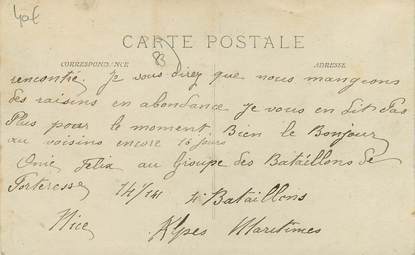 40€
CARTE POSTALE
CORRESPONDANCE
ADRESSE
rencontié. Je vous direz que nous mangeons
des raisins en abondance je vous en dit Pas
Plus pour le moment Bien le Bonjour
au voisins encore 16 jours
Felix au Groupe des Bataillons de
Forteresse 14/14
Bataillons
Nice Alpes Maritimes